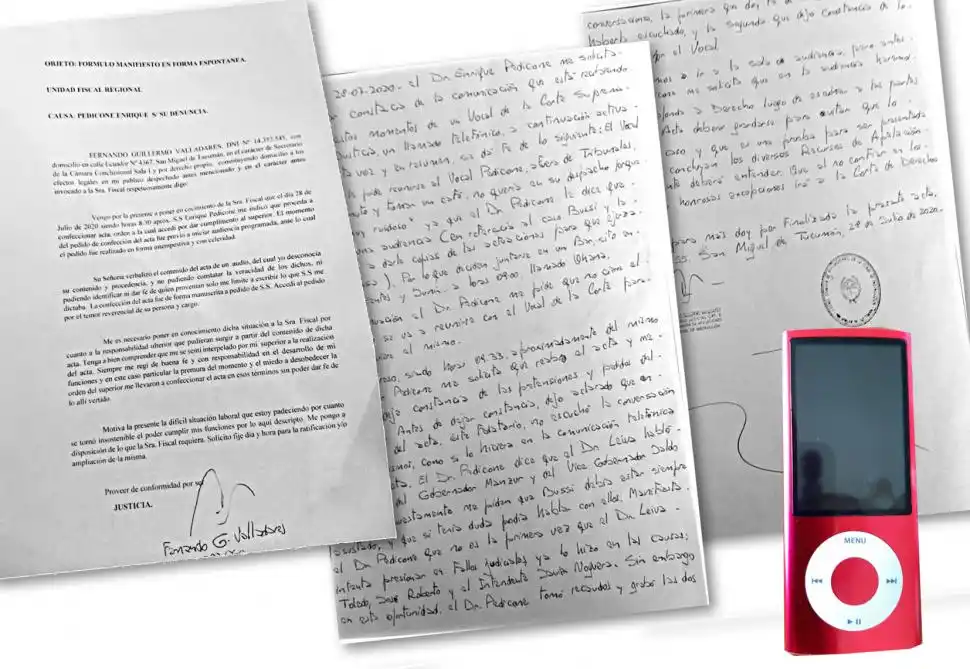 OBJETO: FORMULO MANIFIESTO EN FORMA ESPONTANEA.
UNIDAD FISCAL REGIONAL
CAUSA: PEDICONE ENRIQUE S/ SU DENUNCIA.
FERNANDO GUILLERMO VALLADARES, DNI Nº con
domicilio en calle Ecuador Nº 4367, San Miguel de Tucumán, en el carácter de Secretario
de la Cámara Conclusional Sala I y por derecho propio, constituyendo domicilio a los
efectos legales en mi publico despechado antes mencionado y en el carácter antes
invocado a la Sra. Fiscal respetuosamente digo:
Vengo por la presente a poner en cocimiento de la Sra. Fiscal que el día 28 de
Julio de 2020 siendo horas 8:30 aprox. S.S Enrique Pedicone me indicó que proceda a
confeccionar acta, orden a la cual accedí por dar cumplimiento al superior. El momento
del pedido de confección del acta fue previo a iniciar audiencia programada, ante lo cual
el pedido fue realizado en forma intempestiva y con celeridad.
Su Señoría verbalizó el contenido del acta de un audio, del cual yo desconocía
su contenido y procedencia, y no pudiendo constatar la veracidad de los dichos, ni
pudiendo identificar ni dar fe de quien provenían solo me limite a escribir lo que S.S me
dictaba. La confección del acta fue de forma manuscrita a pedido de S.S. Accedí al pedido
por el temor reverencial de su persona y cargo.
Me es necesario poner en conocimiento dicha situación a la Sra. Fiscal por
cuanto a la responsabilidad ulterior que pudieran surgir a partir del contenido de dicha
acta. Tenga a bien comprender que me se sentí interpelado por mi superior a la realización
del acta. Siempre me regí de buena fe y con responsabilidad en el desarrollo de mi
funciones y en este caso particular la premura del momento y el miedo a desobedecer la
orden del superior me llevaron a confeccionar el acta en esos términos sin poder dar fe de
lo allí vertido.
Motiva la presente la difícil situación laboral que estoy padeciendo por cuanto
se tornó insostenible el poder cumplir mis funciones por lo aquí descripto. Me pongo a
disposición de lo que la Sra. Fiscal requiera. Solicito fije día y hora para la ratificación y/o
ampliación de la misma.
Proveer de conformidad por ser
JUSTICIA.
Fernando G. Valladares
28-07-2020.- el Dr. Enrique Pedicone me solicita
constancia de la comunicación que está recibiendo
estos momentos de un Vocal de la Corte Suprema
Justicia, un llamado telefónico, a continuación activa
voz y en resumen, se da fe de lo siguiente: El Vocal
pide reunirse al Vocal Pedicone, afuera de Tribunales,
y tomar un café, no quería en su despacho porque
ruidoso - ya que el Dr. Pedicone le dice que
una audiencia (en referencia al caso Bussi, y la
a darle copias de las actuaciones para que
). Por lo que deciden juntarse en un Bar, sito en
y Junín a horas 09:00 llamado Ohana.
el Dr. Pedicone me pide que no cierre el
se va a reunirse con el Vocal de la Corte para
el mismo.
siendo horas 09:33 aproximadamente del mismo
Pedicone me solicita que reabra el acta y me
deje constancia de las pretensiones y pedidos del
Antes de dejar constancia, dejo aclarado que en
del acta, este Fedatario, no escuchó la conversación
como si lo hiciera en la comunicación telefónica
El Dr. Pedicone dice que el Dr. Leiva habló
del Gobernador Manzur y del Vice Gobernador Jaldo
me pidan que Bussi debía estar siempre
asustado, y que si tenía duda podía hablar con ellos. Manifiesta
el Dr Pedicone que no es la primera vez que el Dr. Leiva
intenta presionar en Fallos judiciales, ya lo hizo en las causas;
Toledo, José Roberto y el Intendente Javier Noguera. Sin embargo
en esta oportunidad, el Dr. Pedicone tomó recaudos y grabó las dos
conversaciones, la primera que doy fe de
haberla escuchado, y la segunda que dejo constancia de lo
el Vocal
a ir a la sala de audiencia, pero antes
me solicita que en la audiencia
a Derecho luego de escuchar a las partes
Acta deberá guardarse para evitar que lo
caso, y que es una prueba para ser presentada
concluyan los diversos Recursos de Apelación
deberá entender. Que al no confiar en los
honrosas excepciones irá a la Corte de Derechos
para más doy por finalizada la presente acta,
San Miguel de Tucumán, 28 de Julio de 2020.
MENU